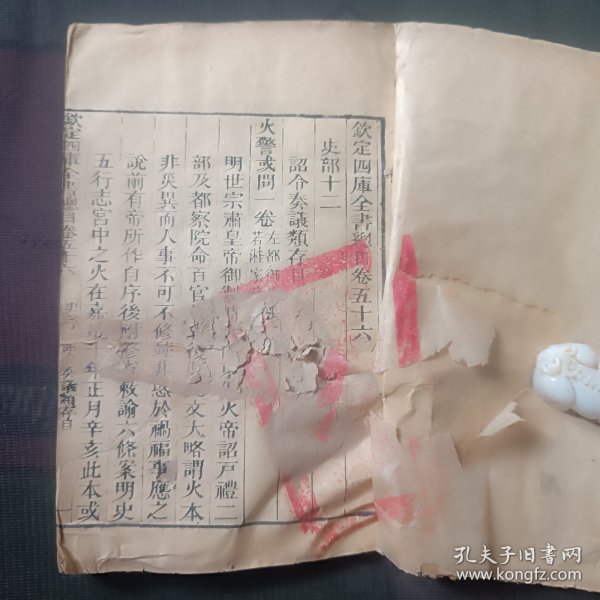 欽定四庫全書總目卷五十六
史部十二
詔令奏議類存目
火警或問一卷 左都御
明世宗肅皇帝御 火帝詔戸禮二
部及都察院命百官 文大略謂火本
非災異而人事不可不修 非 於禍福事應之
說前有帝所作自序後附 敕諭六條案明史
五行志宮中之火在嘉 十年正月辛亥此本或
欽定四庫全書 目 卷五十六
孔夫子旧书网
www.kongfz.com